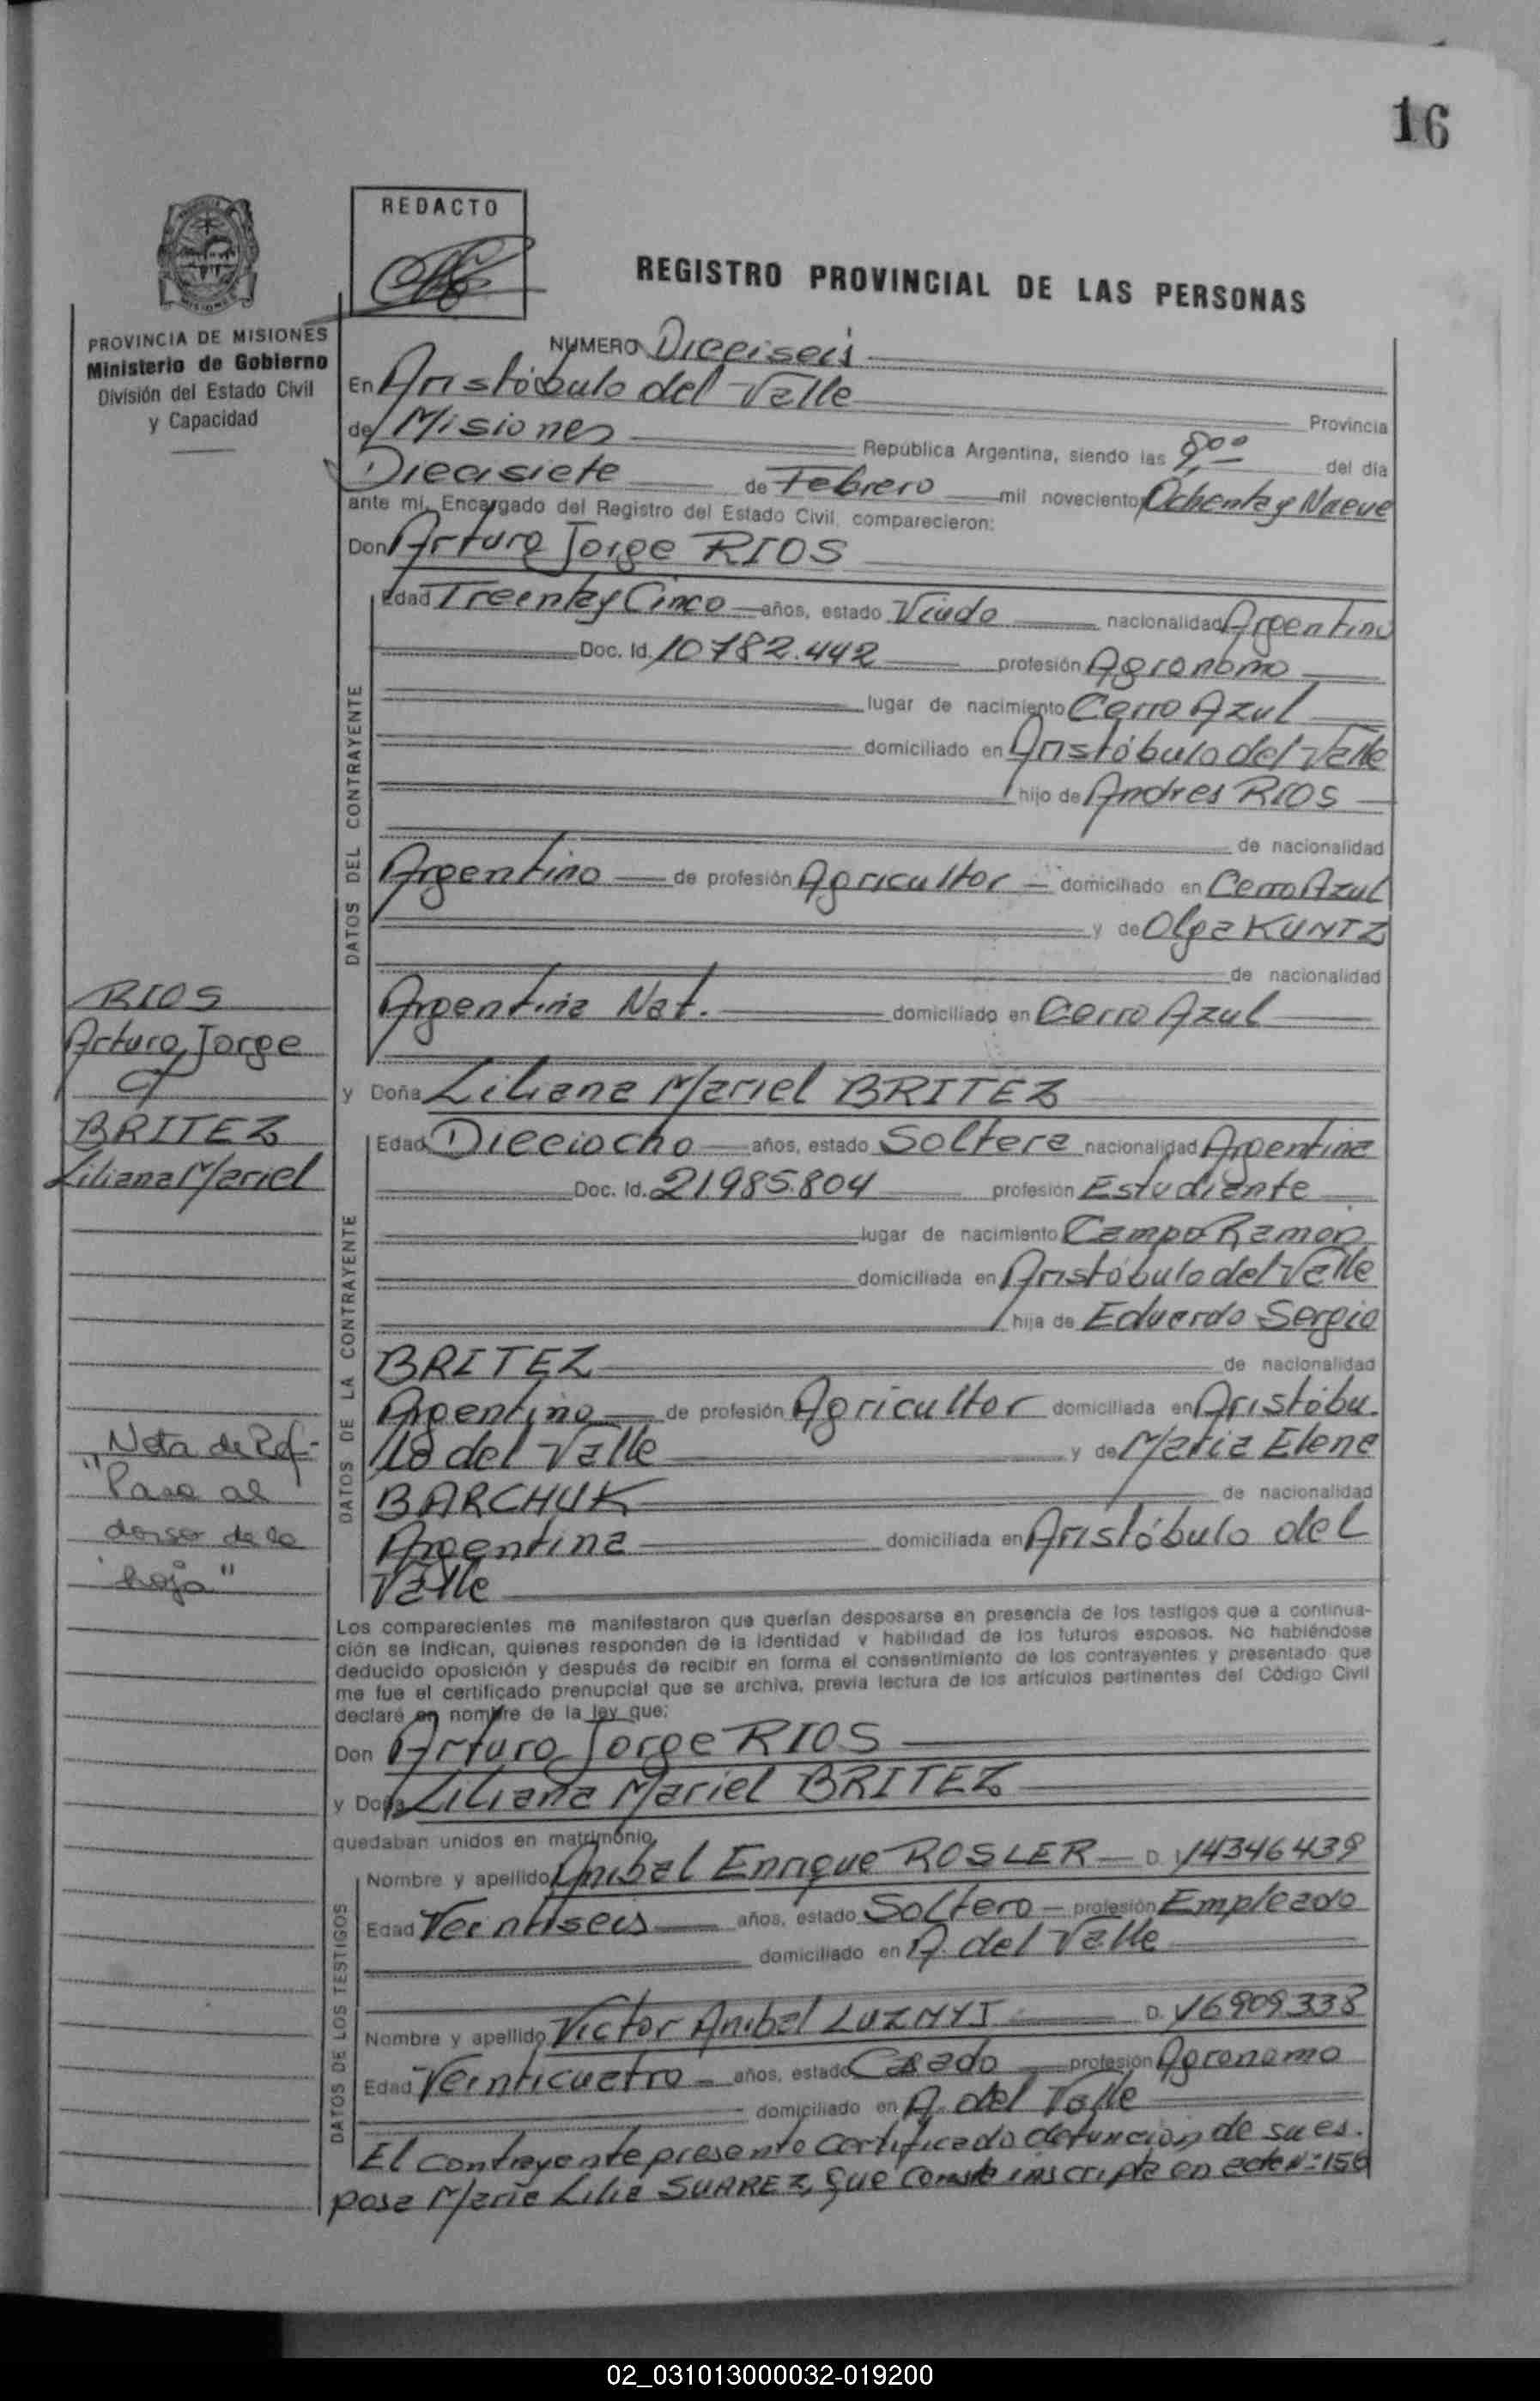 16
REDACTO
REGISTRO PROVINCIAL DE LAS PERSONAS
PROVINCIA DE MISIONES
Ministerio de Gobierno
División del Estado Civil
y Capacidad
NUMERO Dieciseis
En Aristóbulo del Valle Provincia
de Misiones República Argentina, siendo las 9,00 del día
Diecisiete de Febrero mil novecientos Ochenta y Nueve
ante mi, Encargado del Registro del Estado Civil, comparecieron:
Don Arturo Jorge RIOS
DATOS DEL CONTRAYENTE
Edad Treinta y Cinco años, estado Viudo nacionalidad Argentino
Doc. Id. 10782.442 profesión Agronomo
lugar de nacimiento Cerro Azul
domiciliado en Aristóbulo del Valle
hijo de Andres RIOS
de nacionalidad
Argentino de profesión Agricultor domiciliado en Cerro Azul
y de Olga KUNTZ
de nacionalidad
Argentina Nat. domiciliado en Cerro Azul
RIOS
Arturo Jorge
c/
BRITEZ
Liliana Mariel
y Doña Liliana Mariel BRITEZ
DATOS DE LA CONTRAYENTE
Edad Dieciocho años, estado Soltera nacionalidad Argentina
Doc. Id. 21985.804 profesión Estudiante
lugar de nacimiento Campo Ramon
domiciliada en Aristóbulo del Valle
hija de Eduardo Sergio
BRITEZ de nacionalidad
Argentino de profesión Agricultor domiciliada en Aristóbu-
lo del Valle y de Maria Elena
BARCHUK de nacionalidad
Argentina domiciliada en Aristóbulo del
Valle
Nota de Ref-
"Pasa al
dorso de la
hoja"
Los comparecientes me manifestaron que querían desposarse en presencia de los testigos que a continua-
ción se indican, quienes responden de la identidad y habilidad de los futuros esposos. No habiéndose
deducido oposición y después de recibir en forma el consentimiento de los contrayentes y presentado que
me fue el certificado prenupcial que se archiva, previa lectura de los artículos pertinentes del Código Civil
declaré en nombre de la ley que:
Don Arturo Jorge RIOS
y Doña Liliana Mariel BRITEZ
quedaban unidos en matrimonio
DATOS DE LOS TESTIGOS
Nombre y apellido Anibal Enrique ROSLER D. 14346439
Edad Veintiseis años, estado Soltero profesión Empleado
domiciliado en A. del Valle
Nombre y apellido Victor Anibal LUZNYJ D. 16909.338
Edad Veinticuatro años, estado Casado profesión Agronomo
domiciliado en A. del Valle
El contrayente presento certificado defuncion de su es-
posa Maria Lilia SUAREZ, que consta inscripta en acta Nº 156
02_031013000032-019200